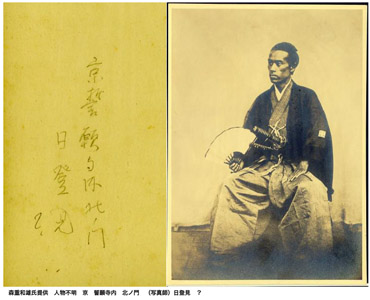 京誓願寺内北ノ門
日登見
森重和雄氏提供　人物不明　京　誓願寺内　北ノ門　（写真師）日登見　？